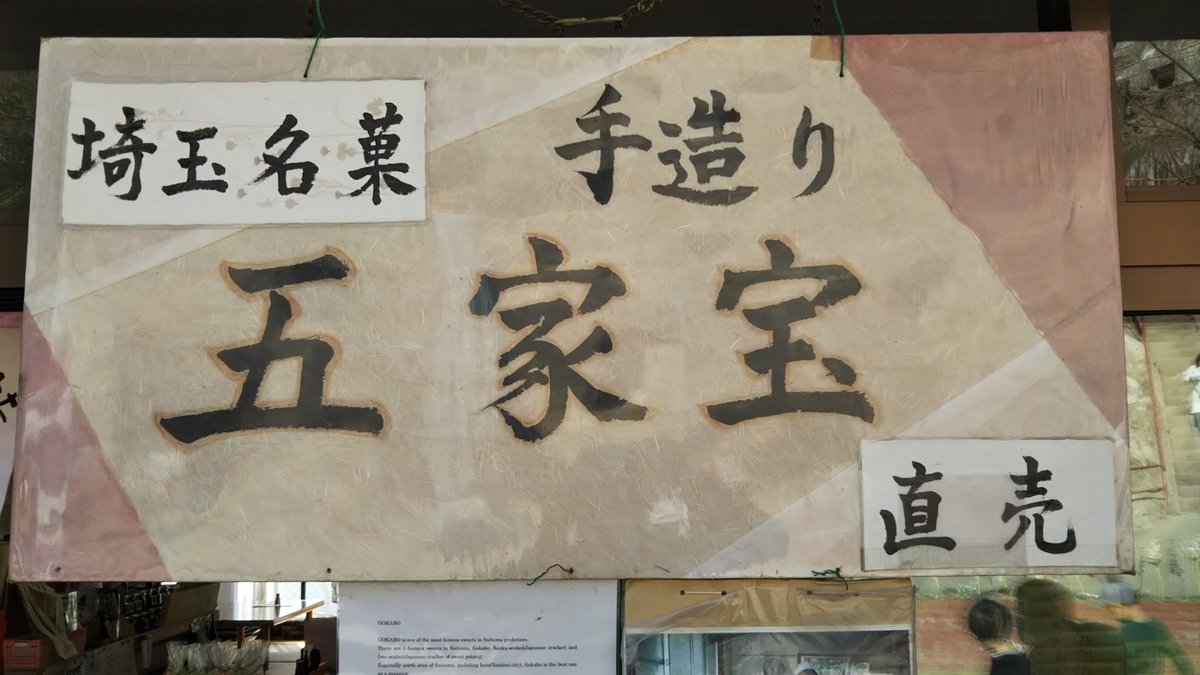 埼玉名菓
手造り
五家宝
直売
GOKABO
GOKABO is one of the most famous sweets in Saitama prefecture.
There are 3 famous sweets in Saitama, Gokabo, Souka-senbei(Japanese cracker) and
Imo-senbei(Japanese cracker of sweet potato).
Especially north area of Saitama, including here(Yoshimi-city), Gokabo is the best one
as a souvenir.